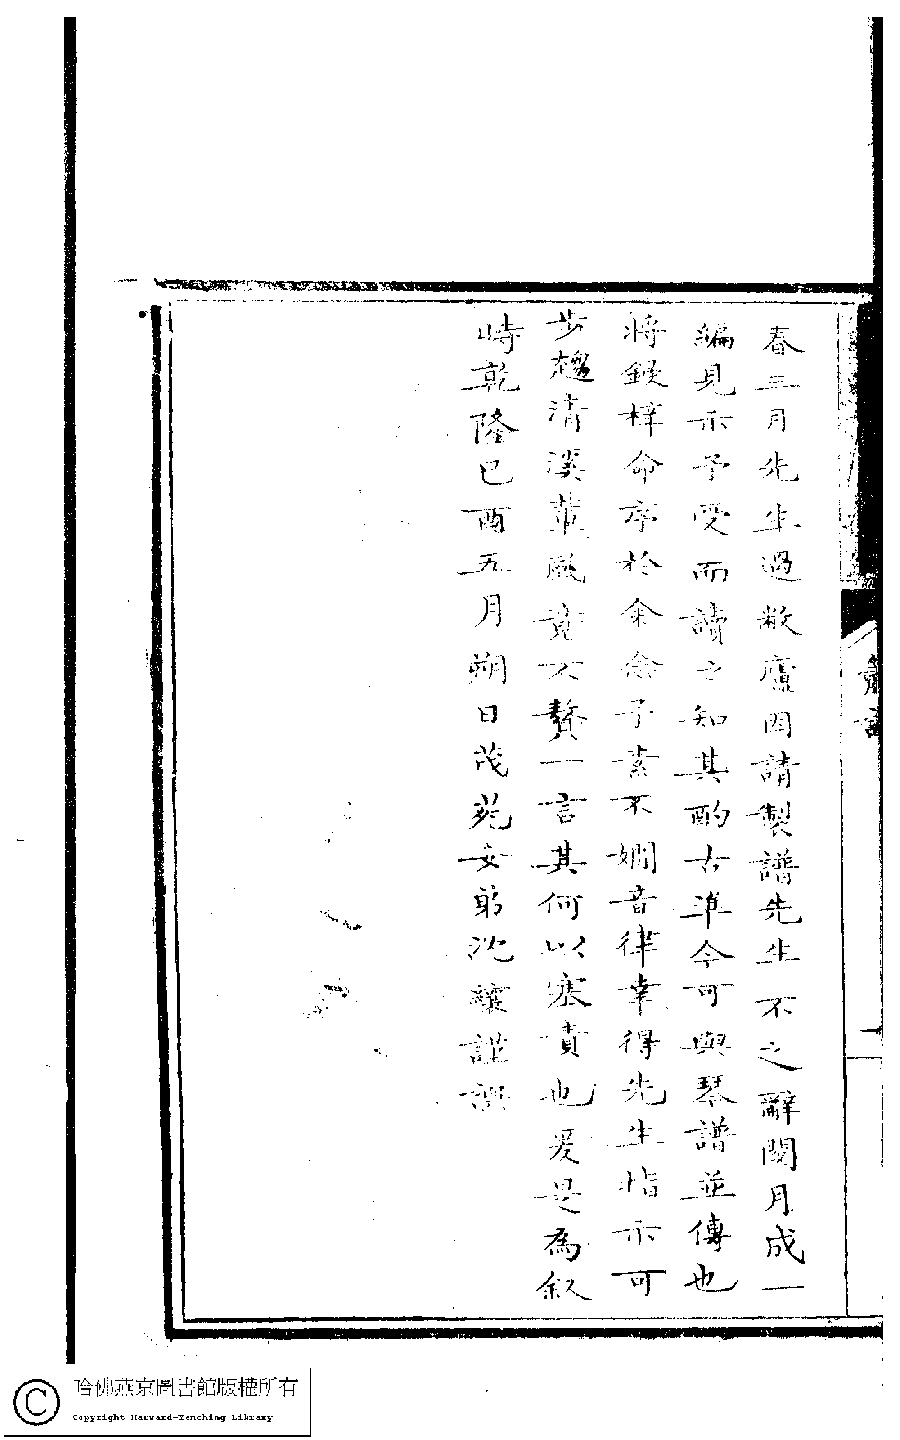 春三月先生過敝廬因請製譜先生不之辭閱月成一
編見示予受而讀之知其酌古準今可與琴譜並傳也
將鋟梓命序於余余予素不嫺音律幸得先生指示可
步趨清溪輩風竟不贅一言其何以塞責也爰是為叙
時乾隆巳酉五月朔日茂苑女弟沈纕謹
哈佛燕京圖書館版權所有
Copyright Harvard-Yenching Library